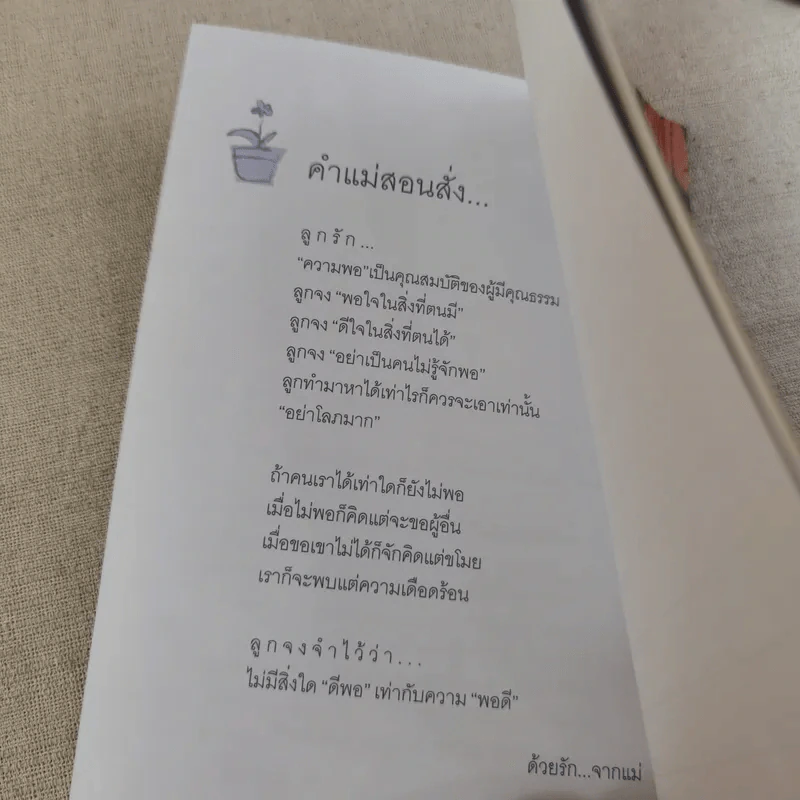 คำแม่สอนสั่ง...
ลู ก รั ก ...
“ความพอ”เป็นคุณสมบัติของผู้มีคุณธรรม
ลูกจง “พอใจในสิ่งที่ตนมี”
ลูกจง “ดีใจในสิ่งที่ตนได้”
ลูกจง “อย่าเป็นคนไม่รู้จักพอ”
ลูกทำมาหาได้เท่าไรก็ควรจะเอาเท่านั้น
“อย่าโลภมาก”
ถ้าคนเราได้เท่าใดก็ยังไม่พอ
เมื่อไม่พอก็คิดแต่จะขอผู้อื่น
เมื่อขอเขาไม่ได้ก็จักคิดแต่ขโมย
เราก็จะพบแต่ความเดือดร้อน
ลู ก จ ง จำ ไ ว้ ว่ า . . .
ไม่มีสิ่งใด “ดีพอ” เท่ากับความ “พอดี”
ด้วยรัก...จากแม่